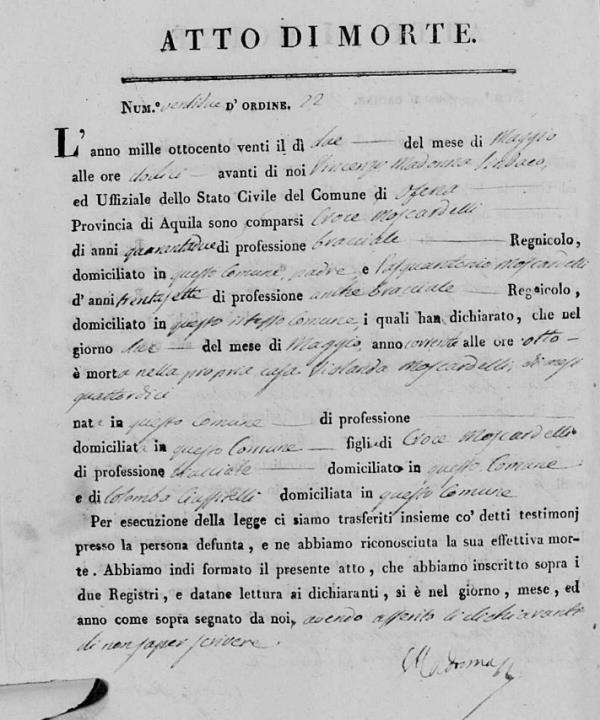 ATTO DI MORTE.
NUM.º ventidue D'ORDINE. 22
L'anno mille ottocento venti il dì due del mese di Maggio
alle ore dodici avanti di noi Vincenzo Madonna Sindaco,
ed Uffiziale dello Stato Civile del Comune di Ofena
Provincia di Aquila sono comparsi Croce Moscardelli
di anni quarantadue di professione bracciale Regnicolo,
domiciliato in questo Comune, padre e Pasquantonio Moscardelli
d'anni trentasette di professione anche bracciale Regnicolo,
domiciliato in questo istesso Comune, i quali han dichiarato, che nel
giorno due del mese di Maggio, anno corrente alle ore otto
è morta nella propria casa Violanda Moscardelli, di mesi
quattordici
nata in questo Comune di professione
domiciliata in questo Comune figli di Croce Moscardelli
di professione bracciale domiciliato in questo Comune
e di Colomba domiciliata in questo Comune
Per esecuzione della legge ci siamo trasferiti insieme co' detti testimonj
presso la persona defunta, e ne abbiamo riconosciuta la sua effettiva mor-
te. Abbiamo indi formato il presente atto, che abbiamo inscritto sopra i
due Registri, e datane lettura ai dichiaranti, si è nel giorno, mese, ed
anno come sopra segnato da noi, avendo asserito li dichiaranti
di non saper scrivere.
Madonna